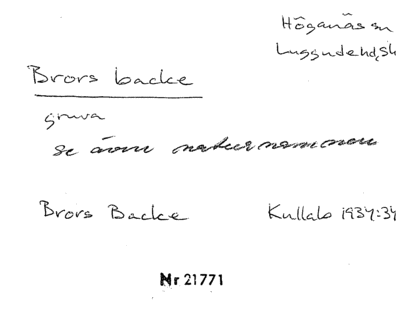 Höganäs sn
Luggudehd, Sk
Brors backe
gruva
se även naturnamnen
Brors Backe Kullabo 1934:34
Nr 21771